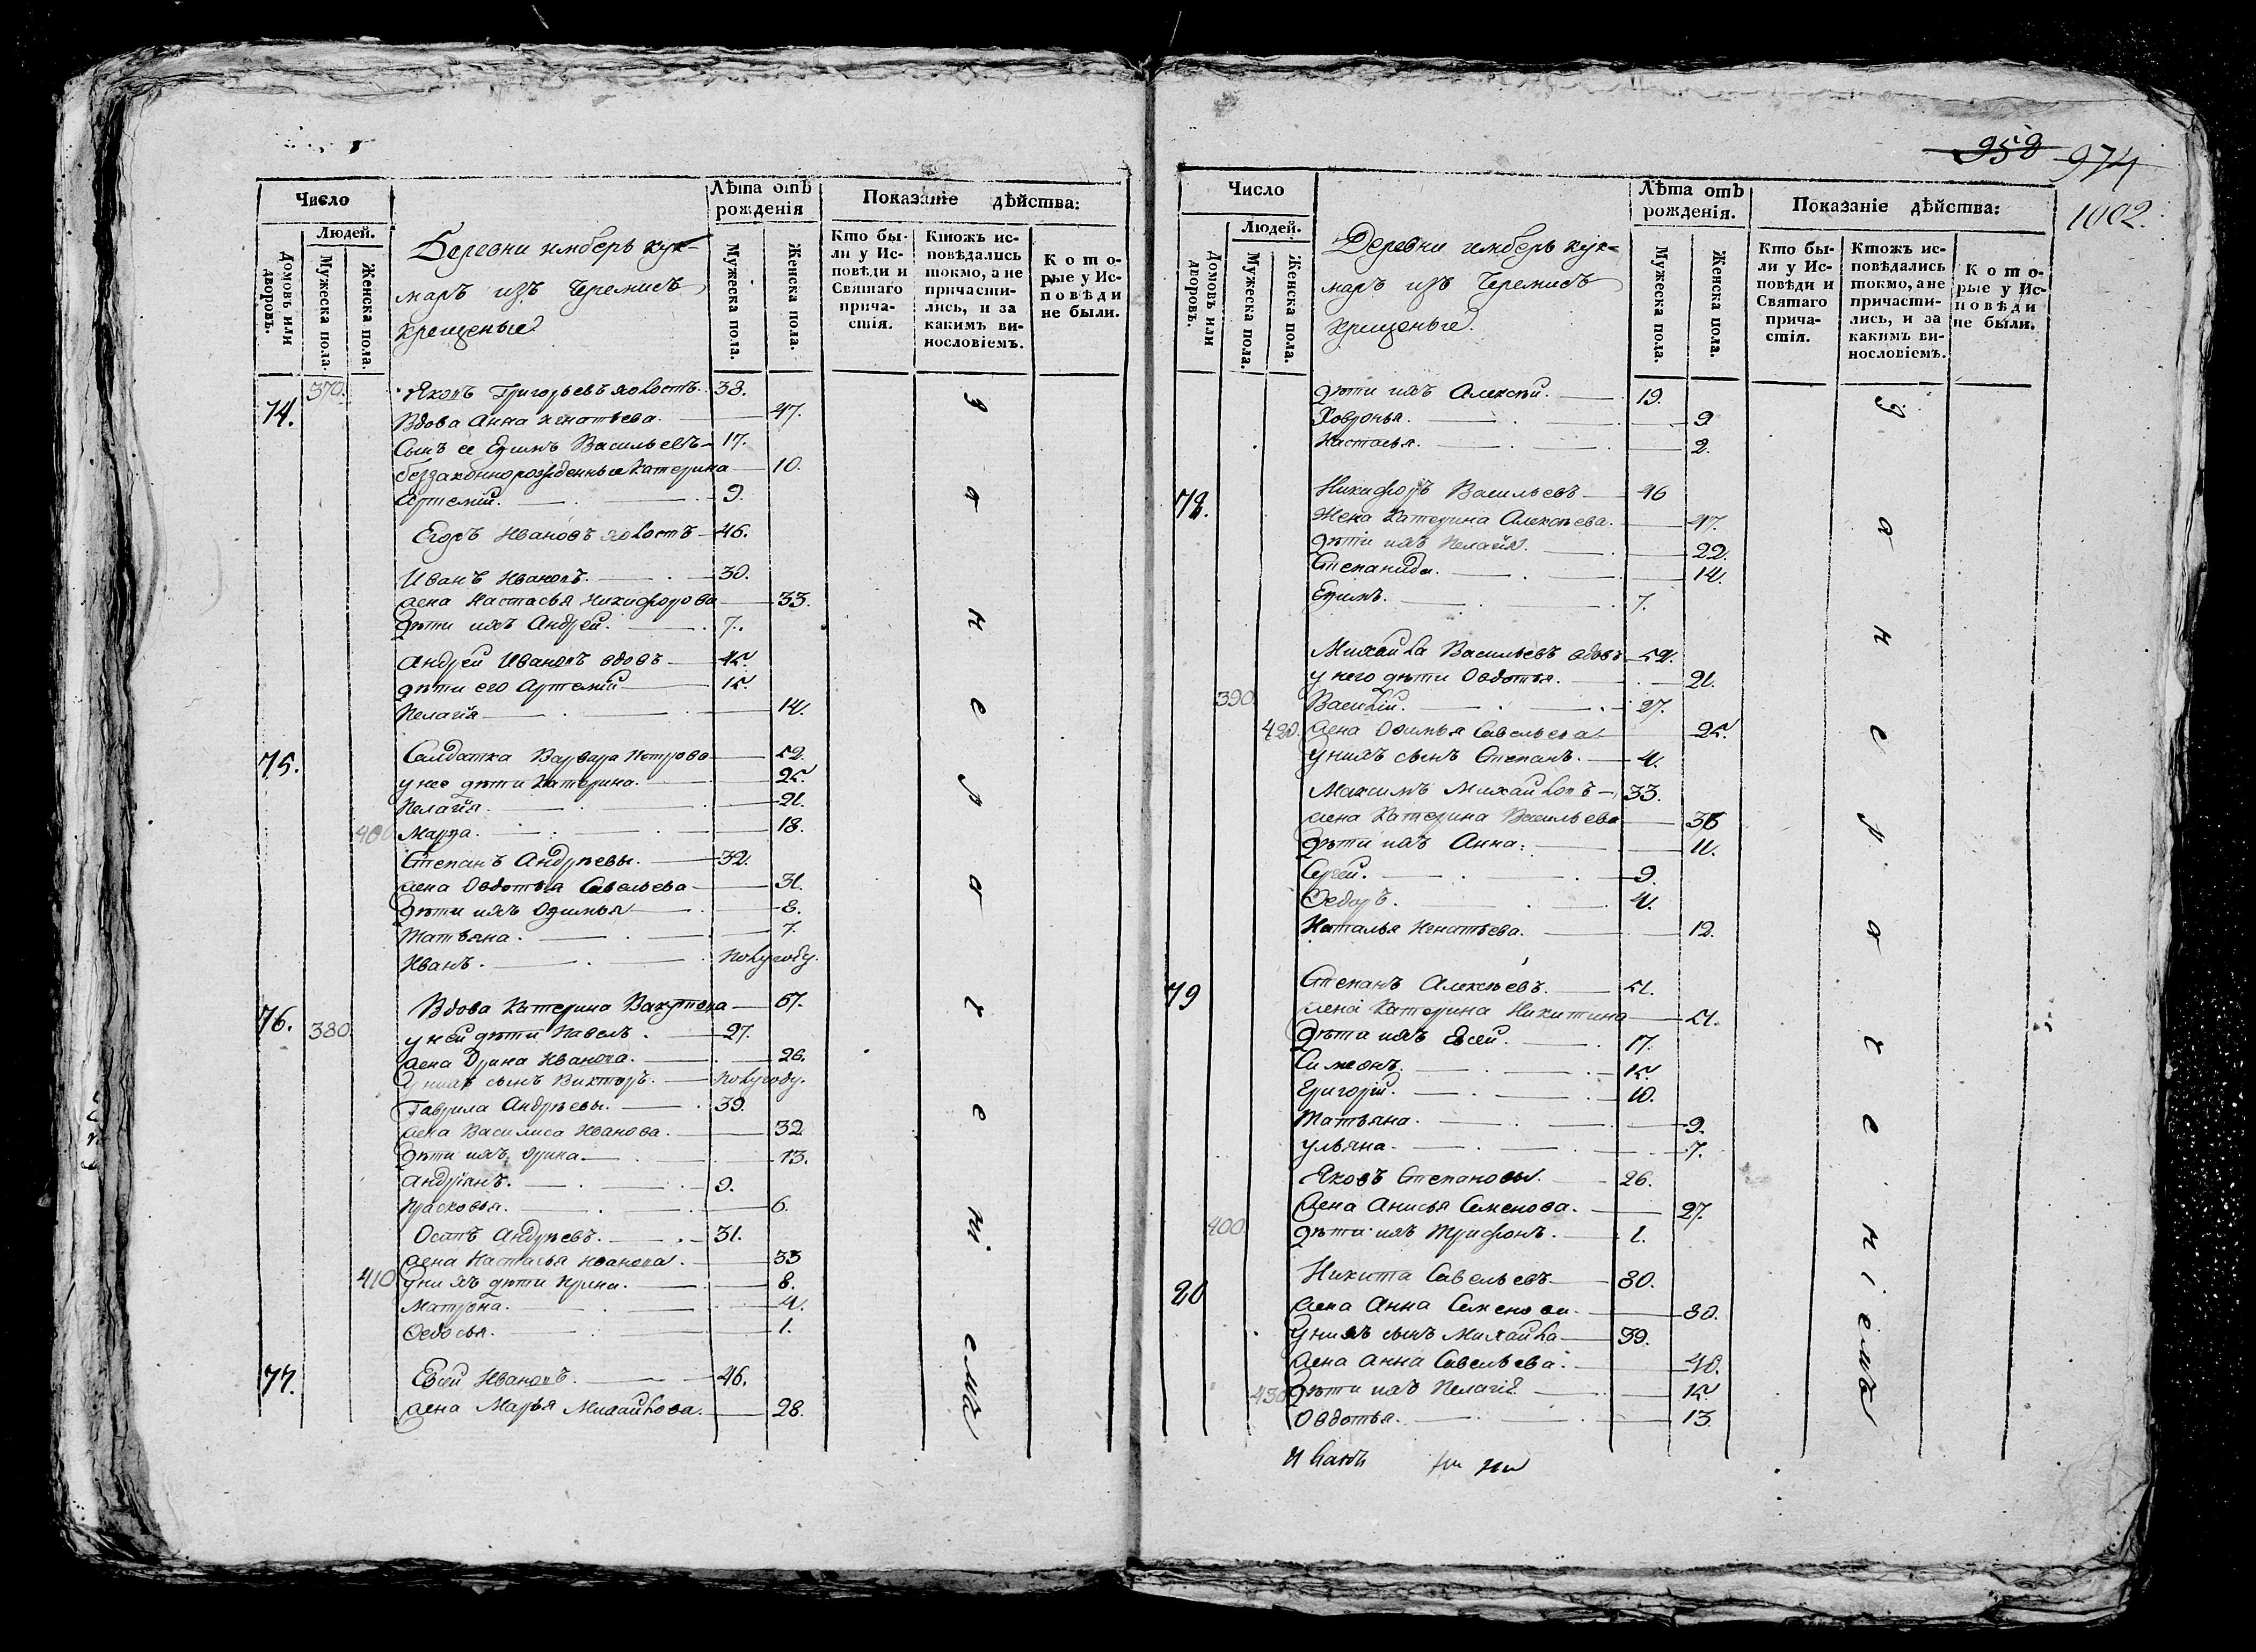 Число
Людей.
Домовъ или дворовъ.
Мужеска пола.
Женска пола.
Деревни имберь кук-
маръ изъ Черемисъ
крещеные
Лѣта отъ рожденія
Мужеска пола.
Женска пола.
Показаніе дѣйства:
Кто бы-
ли у Ис-
повѣди и
Святаго
прича-
стія.
Ктожъ ис-
повѣдались
токмо, а не
причасти-
лись, и за
какимъ ви-
нословіемъ.
К о т о-
рые у Ис-
п о в ѣ д и
не были.
370. Григорьевъ холостъ. 38.
74. Вдова Анна Игнатьева. 47.
Сынъ ее Ефимъ Васильевъ 17.
беззаконнорожденные Катерина 10.
Артемій. 9.
Егоръ Ивановъ холостъ 46.
Иванъ Ивановъ. 30.
жена Настасья Никифорова 33.
дѣти ихъ Андрей. 7.
Андрей Ивановъ вдовъ 45.
дѣти его Артемій 15.
Пелагія 14.
75. Салдатка Варвара Петрова 52.
у нее дѣти Катерина. 25.
Пелагія. 21.
400 Марфа. 18.
Степанъ Андрѣевъ. 32.
жена Овдотья Савельева 31.
дѣти ихъ Офимья 8.
Татьяна. 7.
Иванъ. полугоду.
76. Вдова Катерина 67.
380 у ней дѣти Павелъ. 27.
жена Орина Иванова. 26.
у нихъ сынъ Викторъ. полугоду.
Гаврила Андрѣевъ. 39.
жена Василиса Иванова. 32
дѣти ихъ Орина. 13.
Андріянъ. 9.
Прасковья. 6.
Осипъ Андрѣевъ. 31.
жена Настасья Иванова. 33
410 у нихъ дѣти Ирина. 8.
Матрона. 4.
Ѳедосья. 1.
77. Евсей Ивановъ. 46.
жена Марья Михайлова. 28.
з а н е р а ч е н і емъ
958 974
1002.
Число
Людей.
Домовъ или дворовъ.
Мужеска пола.
Женска пола.
Деревни имберь кук=
маръ изъ Черемисъ
крещеные.
Лѣта отъ рожденія.
Мужеска пола.
Женска пола.
Показаніе дѣйства:
Кто бы-
ли у Ис-
повѣди и
Святаго
прича-
стія.
Ктожъ ис-
повѣдались
токмо, а не
причасти-
лись, и за
какимъ ви-
нословіемъ.
К о т о-
рые у Ис-
п о в ѣ д и
не были.
дѣти ихъ Алексѣй. 19.
Ховронья. 9
Настасья. 2.
78. Никифоръ Васильевъ 46
Жена Катерина Алексѣева. 47.
дѣти ихъ Пелагія. 22.
Степанида. 14.
Ефимъ. 7.
Михайла Васильевъ вдовъ 52.
у него дѣти Овдотья. 21.
390. Василій. 27.
420. жена Офимья Савельева 25.
у нихъ сынъ Степанъ. 4.
Максимъ Михайловъ 33.
жена Катерина Васильева 36
дѣти ихъ Анна. 11.
Сергей. 9.
Ѳедоръ. 4.
Наталья Игнатьева. 12.
79 Степанъ Алексѣевъ. 51.
жена Катерина Никитина 51.
дѣти ихъ Евсей. 17.
Симеонъ. 15.
Григорій. 10.
Татьяна. 9.
Ульяна. 7.
Яковъ Степановъ. 26.
жена Анисья Семенова. 27.
400. дѣти ихъ Трифонъ. 1.
80 Никита Савельевъ 80.
жена Анна Семенова. 80.
у нихъ сынъ Михайла 39.
жена Анна Савельева. 40.
430 дѣти ихъ Пелагія 15.
Овдотья. 13
з а н е р а ч е н і емъ